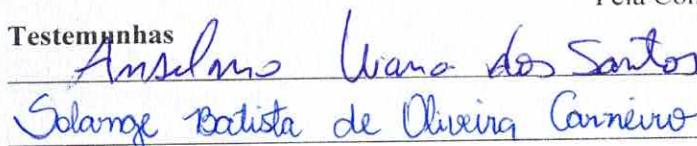 Pela Con
Testemunhas
Anselmo Viana dos Santos
Solange Batista de Oliveira Carneiro